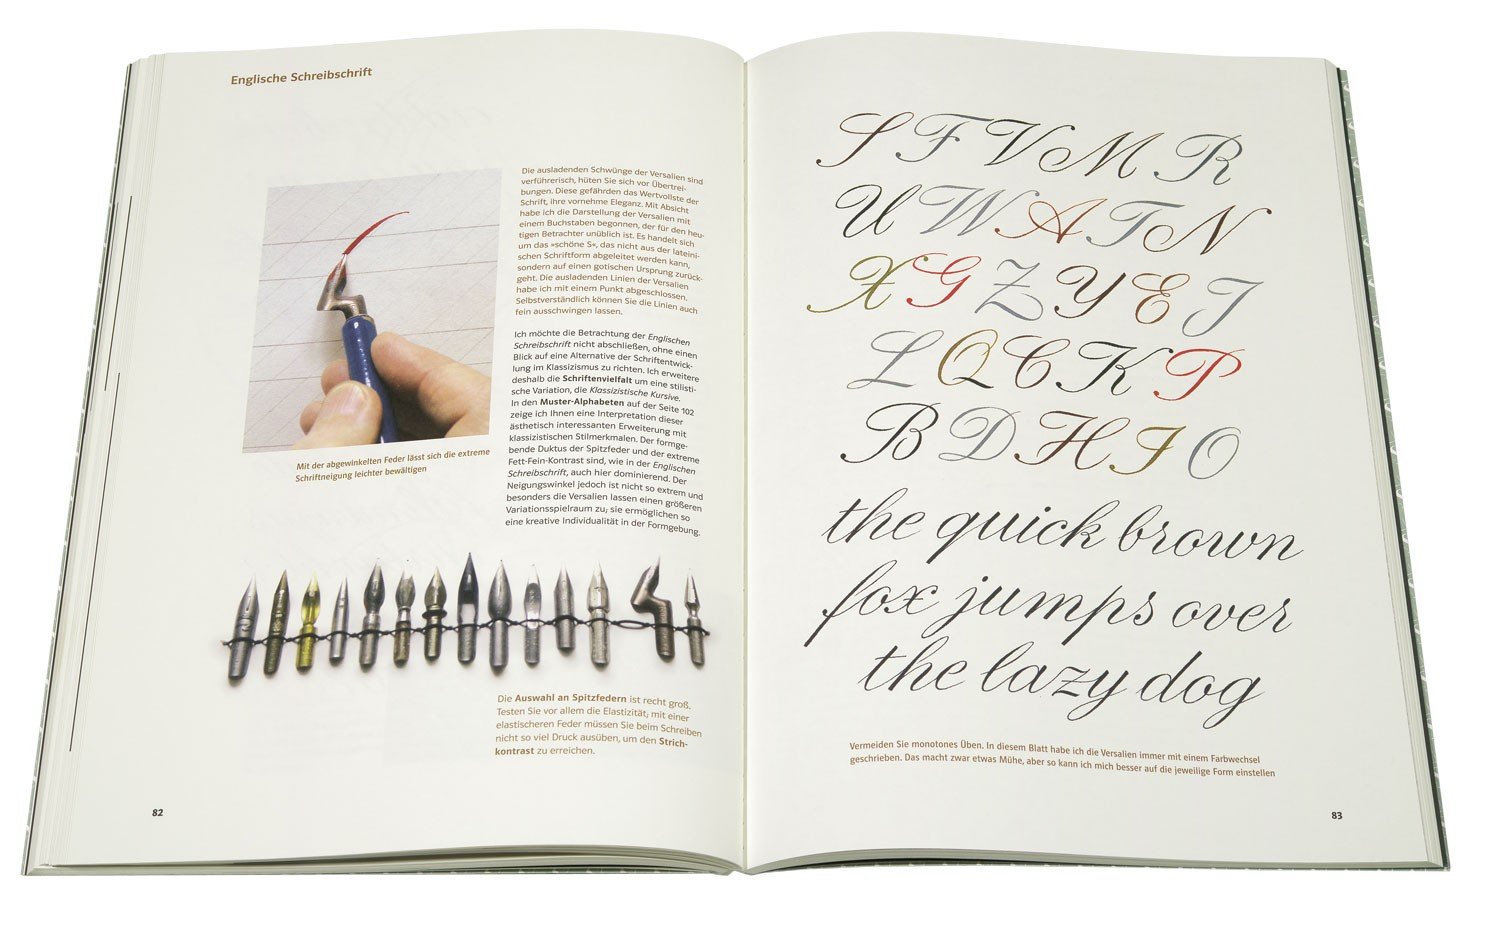 Englische Schreibschrift
Die ausladenden Schwünge der Versalien sind
verführerisch, hüten Sie sich vor Übertrei-
bungen. Diese gefährden das Wertvollste der
Schrift, ihre vornehme Eleganz. Mit Absicht
habe ich die Darstellung der Versalien mit
einem Buchstaben begonnen, der für den heu-
tigen Betrachter unüblich ist. Es handelt sich
um das »schöne S«, das nicht aus der lateini-
schen Schriftform abgeleitet werden kann,
sondern auf einen gotischen Ursprung zurück-
geht. Die ausladenden Linien der Versalien
habe ich mit einem Punkt abgeschlossen.
Selbstverständlich können Sie die Linien auch
fein ausschwingen lassen.
Ich möchte die Betrachtung der Englischen
Schreibschrift nicht abschließen, ohne einen
Blick auf eine Alternative der Schriftentwick-
lung im Klassizismus zu richten. Ich erweitere
deshalb die Schriftenvielfalt um eine stilisti-
sche Variation, die Klassizistische Kursive.
In den Muster-Alphabeten auf der Seite 102
zeige ich Ihnen eine Interpretation dieser
ästhetisch interessanten Erweiterung mit
klassizistischen Stilmerkmalen. Der formge-
bende Duktus der Spitzfeder und der extreme
Fett-Fein-Kontrast sind, wie in der Englischen
Schreibschrift, auch hier dominierend. Der
Neigungswinkel jedoch ist nicht so extrem und
besonders die Versalien lassen einen größeren
Variationsspielraum zu; sie ermöglichen so
eine kreative Individualität in der Formgebung.
Mit der abgewinkelten Feder lässt sich die extreme
Schriftneigung leichter bewältigen
Die Auswahl an Spitzfedern ist recht groß.
Testen Sie vor allem die Elastizität; mit einer
elastischeren Feder müssen Sie beim Schreiben
nicht so viel Druck ausüben, um den Strich-
kontrast zu erreichen.
82
S F V M R
U W A T N
X G Z Y E J
L Q C K P
B D H I O
the quick brown
fox jumps over
the lazy dog
Vermeiden Sie monotones Üben. In diesem Blatt habe ich die Versalien immer mit einem Farbwechsel
geschrieben. Das macht zwar etwas Mühe, aber so kann ich mich besser auf die jeweilige Form einstellen
83